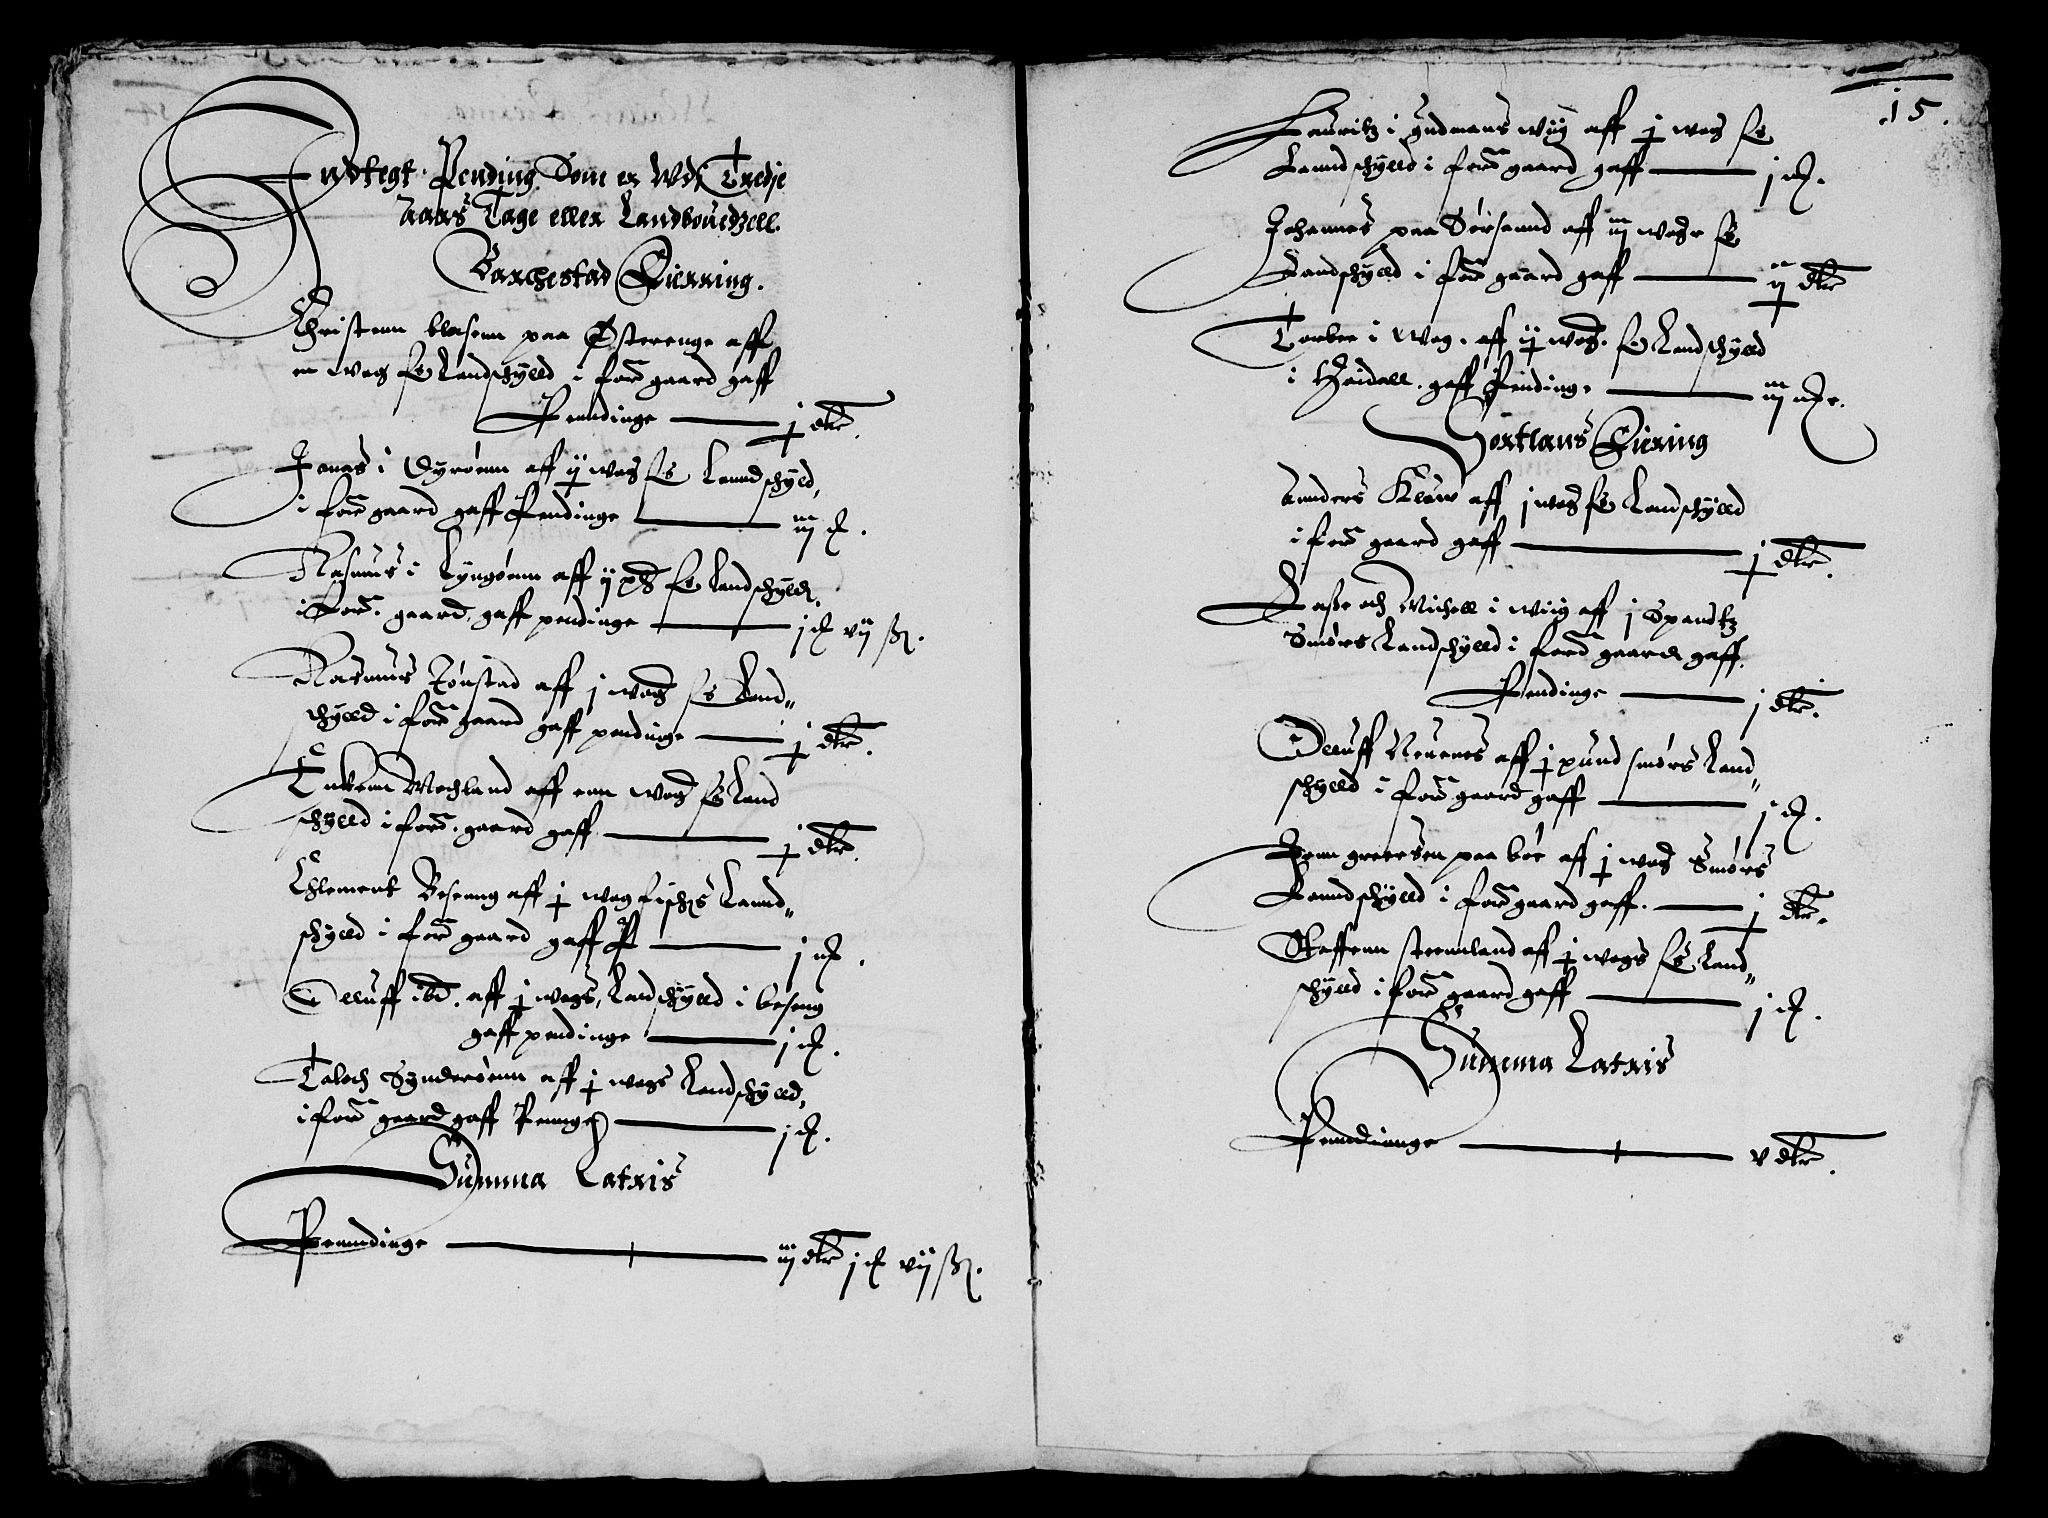 Indtegt Pending Som er Vdj Tredje
Aars Tage eller Landbouedzell.
Barchestad Fierring.
Christenn blasenn paa Østerenge aff
en wog f: Landschylld i ford gaard gaff
Pendinge — j dlr.
Jonas i Dyrøenn aff ij wog f: Lanndschyld,
i ford gaard gaff Pendinge — iij ɱ.
Rasmus i Lyngøenn aff ij pd f: Landschyld,
i ford. gaard, gaff pendinge — j ɱ vij ß.
Rasmus Jønstad aff j wog f: Land„
schylld i ford gaard gaff pendinge — j dlr.
Enkenn Mochland aff enn wog f: Land
schylld i ford. gaard gaff — j dlr.
Chlement Besenng aff j wog fischs Lannd„
schylld i ford gaard gaff P — j ɱ.
Oluff ibd. aff j wogs, Landschylld i beseng
gaff pendinge — j ɱ.
Toloch Synderøenn aff j wogs Landschylld,
i ford gaard gaff Penge — j ɱ.
Summa Latris
Penndinge — iij dlr j ɱ vij ß.
15.
Lauritz i gudmans wiig aff j wog f:
Lanndschylld i ford gaard gaff — j ɱ.
Johannes paa Sørsannd aff iij woge f:
Landschylld i ford gaard gaff — ij dlr
Torber i wog. aff ij wog. f: Landschylld
i Haidall. gaff Pendinge — iij ɱ.
Sortlans Fiering
Annders Kløw aff j wog f: Landschylld
i ford gaard gaff — j dlr.
Lasse och Michell i wiig aff j Spandtz
Smørs Landschylld i ford gaard gaff.
Pendinge — j dlr.
Oluff Neuenes aff j pund smørs Land„
schylld i ford gaard gaff — j ɱ.
Jenn greersen paa bøe aff j wog Smørs
Lanndschylld i ford gaard gaff. — j dlr.
Steffenn steenland aff j wogs f: Land„
schylld i ford gaard gaff — j ɱ.
Summa Latris
Penndinnge — v dlr.